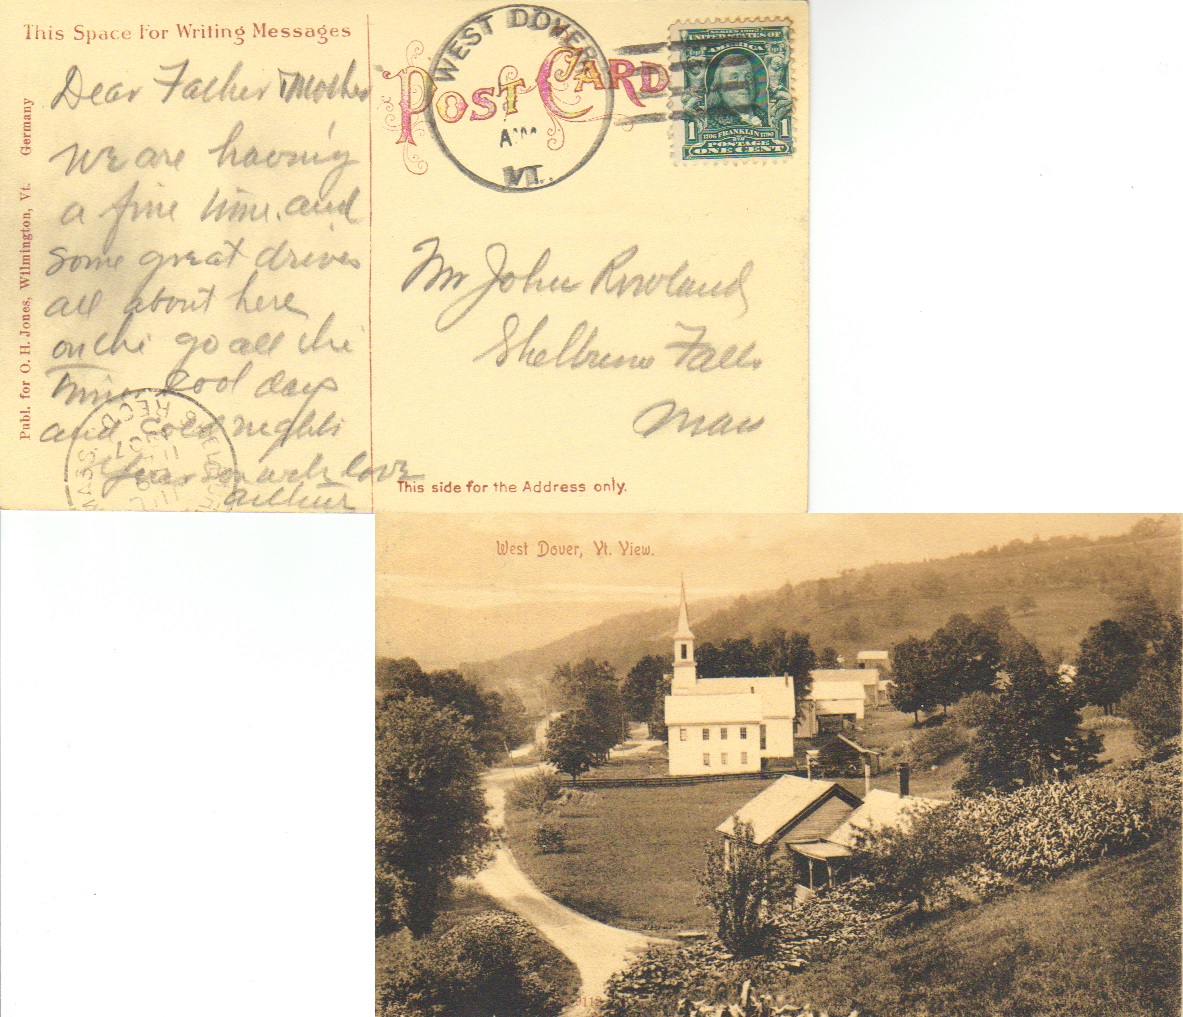 This Space For Writing Messages
Dear Father & Mother
We are having
a fine time. and
some great drives
all about here
on the go all the
time. cool days
and cold nights
your son with love
Arthur
Publ. for O. H. Jones, Wilmington, Vt. Germany
POST CARD
WEST DOVER
AM
VT.
SERIES 1902
UNITED STATES OF
AMERICA
1706 FRANKLIN 1790
POSTAGE
1 ONE CENT 1
Mr John Rowland
Shelburne Falls
Mass
REC'D.
MASS.
This side for the Address only.
West Dover, Vt. View.